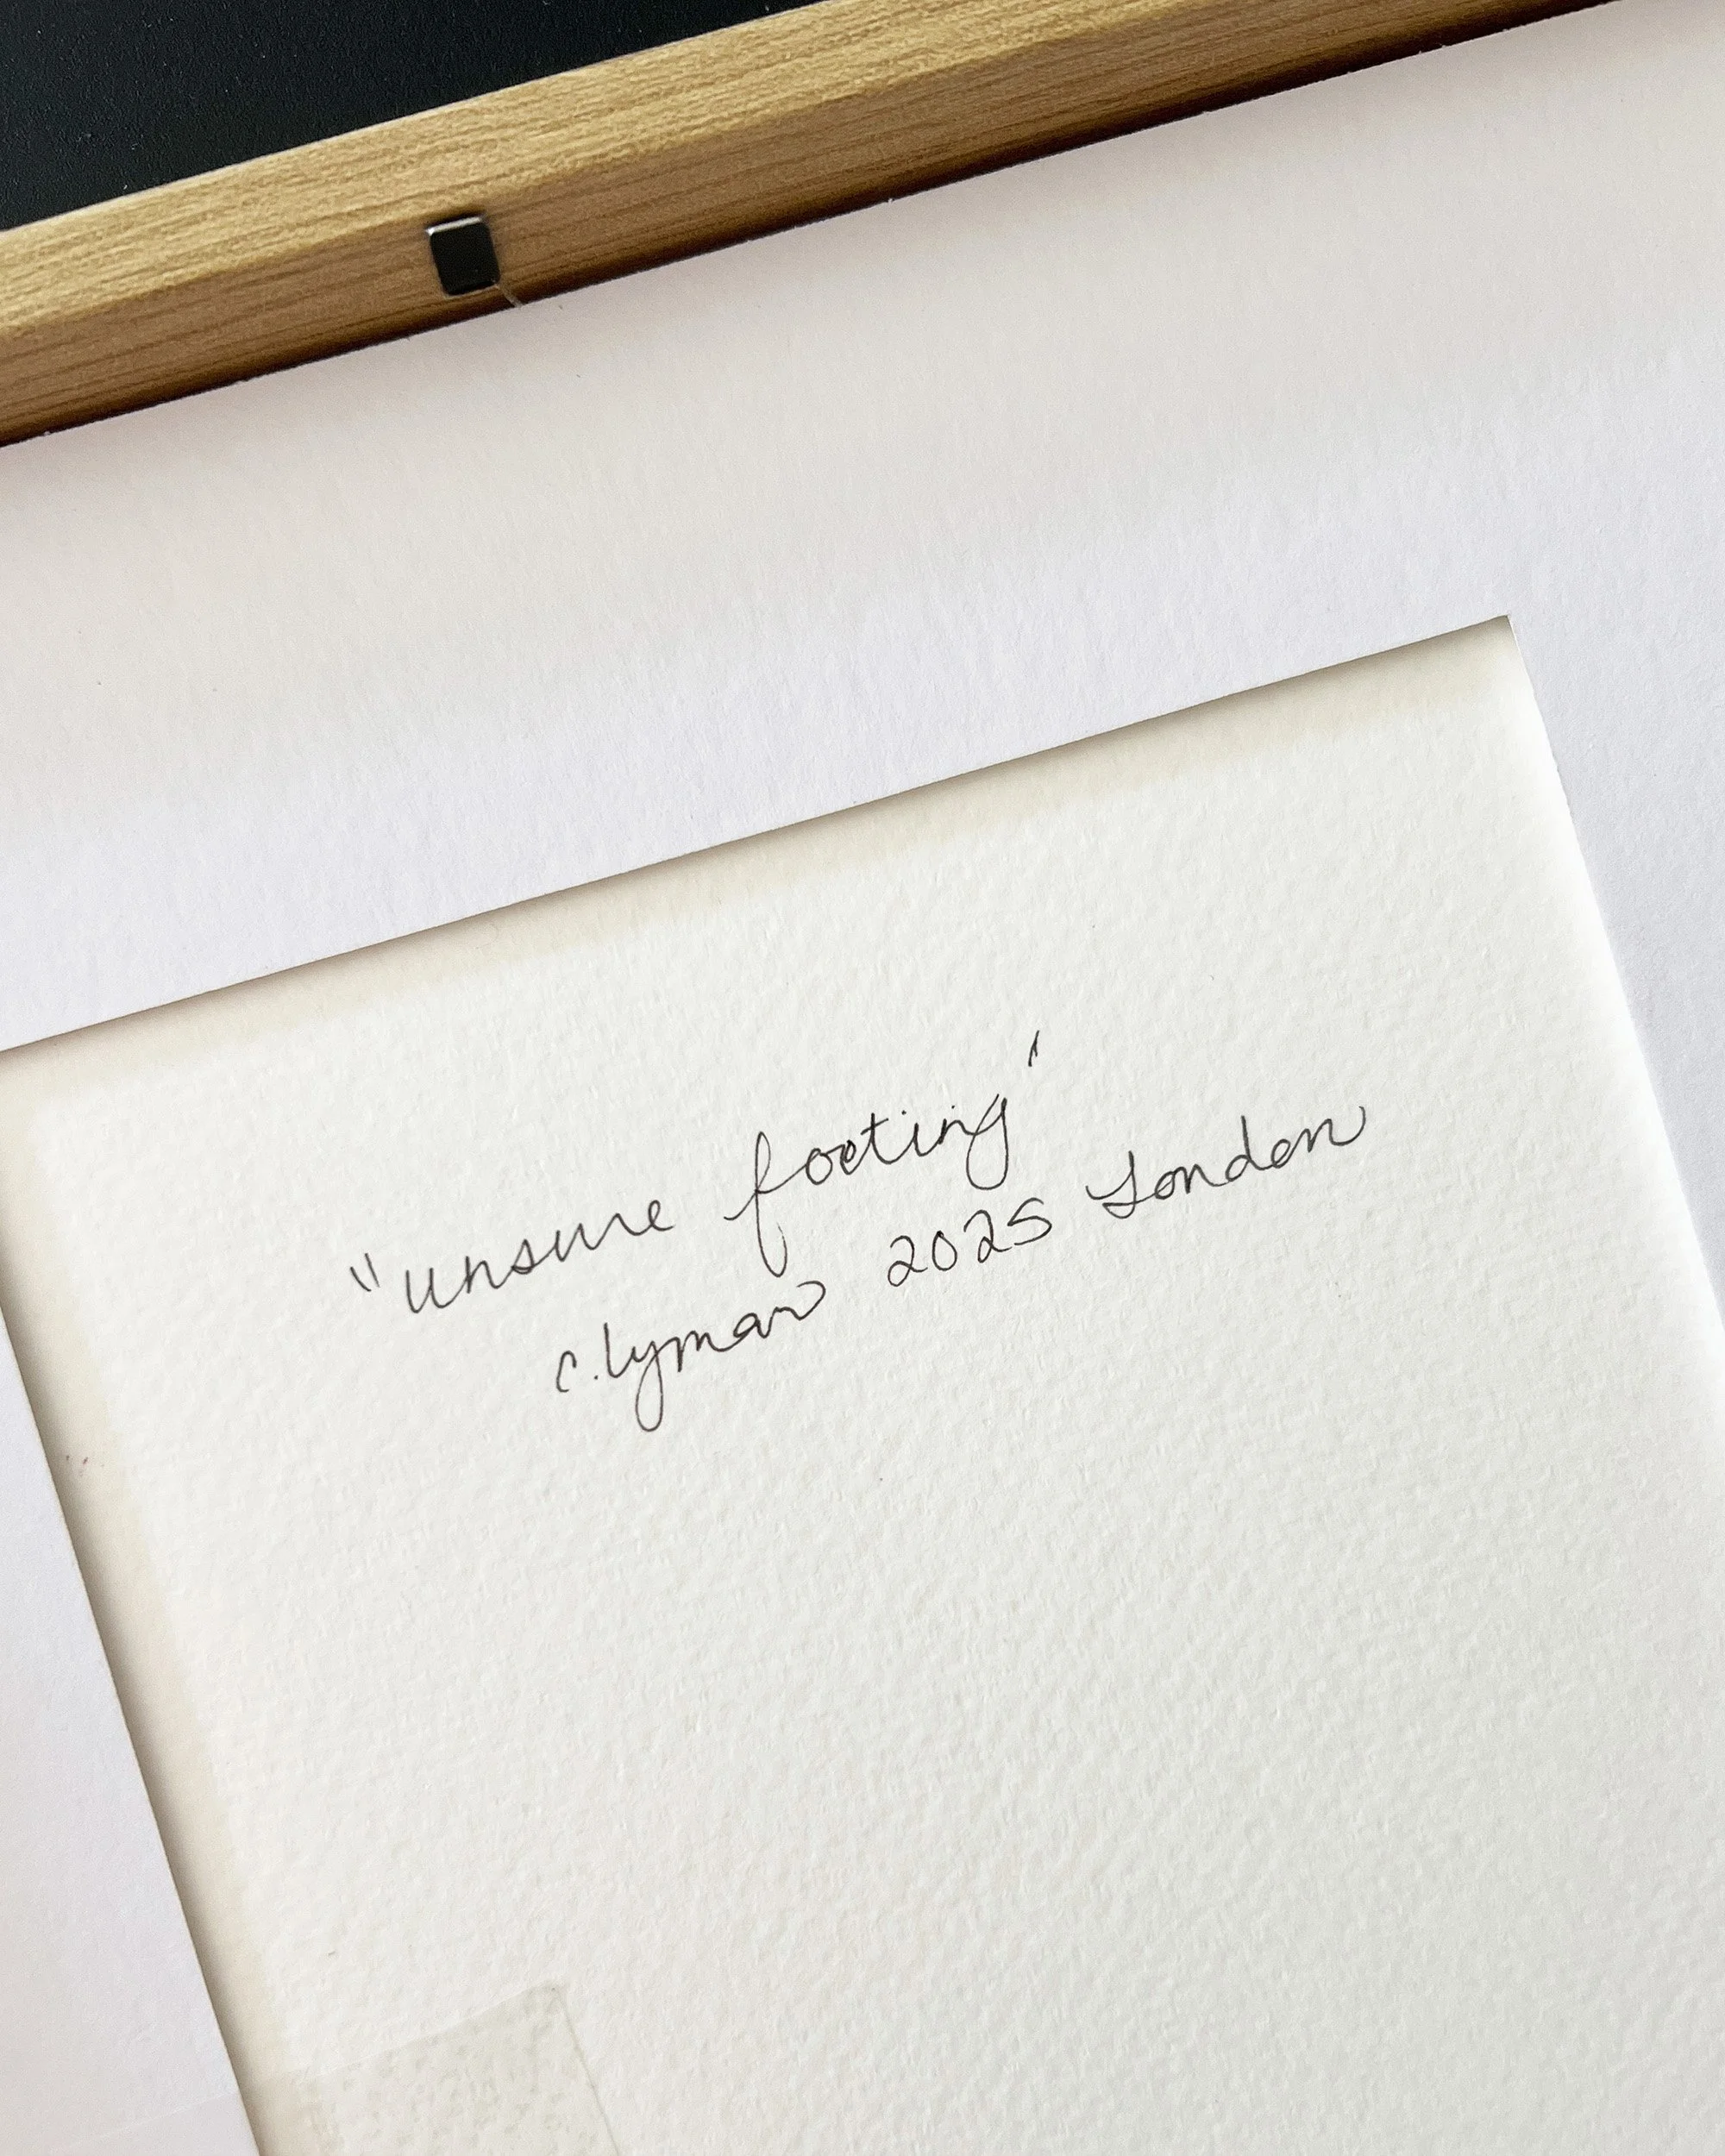 "unsure footing"
c.lyman 2025 London